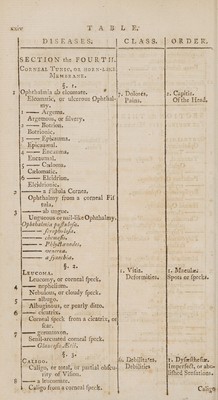 xxiv TABLE.
DISEASES. CLASS. ORDER.
SECTION the FOURTH.
CORNEAL TUNIC, or HORN-LIKE
MEMBRANE.
§. 1.
Ophthalmia ab elcomate. 7. Dolores. 2. Capitis.
Elcomatic, or ulcerous Ophthal- Pains. Of the Head.
my.
1 —— Argema.
Argemous, or silvery.
2 —— Botrion.
Botrionic.
3 —— Epicauma.
Epicaumal.
4 —— Encauma.
Encaumal.
5 —— Cœloma.
Cœlomatic.
6 —— Elcidrion.
Elcidrionic.
2 —— a Fistula Corneæ.
Ophthalmy from a corneal Fis
tula.
3 —— ab ungue.
Ungueous or nail-like Ophthalmy.
Ophthalmia pustulosa.
—— scrophulosa.
—— chemosis.
—— Phlyctænodes.
—— synechia.
§. 2.
LEUCOMA. 1. Vitia. 1. Maculæ.
Leucomy, or corneal speck. Deformities. Spots or specks.
4 —— nephelium.
Nebulous, or cloudy speck.
5 —— albugo.
Albuginous, or pearly ditto.
6 —— cicatrix.
Corneal speck from a cicatrix, or
scar.
7 —— gerontoxon.
Semi-arcuated corneal speck.
§. 3.
CALIGO. 6. Debilitates. 1. Dysæsthesiæ.
Caligo, or total, or partial obscu- Debilities Imperfect, or abo-
rity of Vision. lished Sensations.
8 —— a leucomate.
Caligo from a corneal speck. Caligo